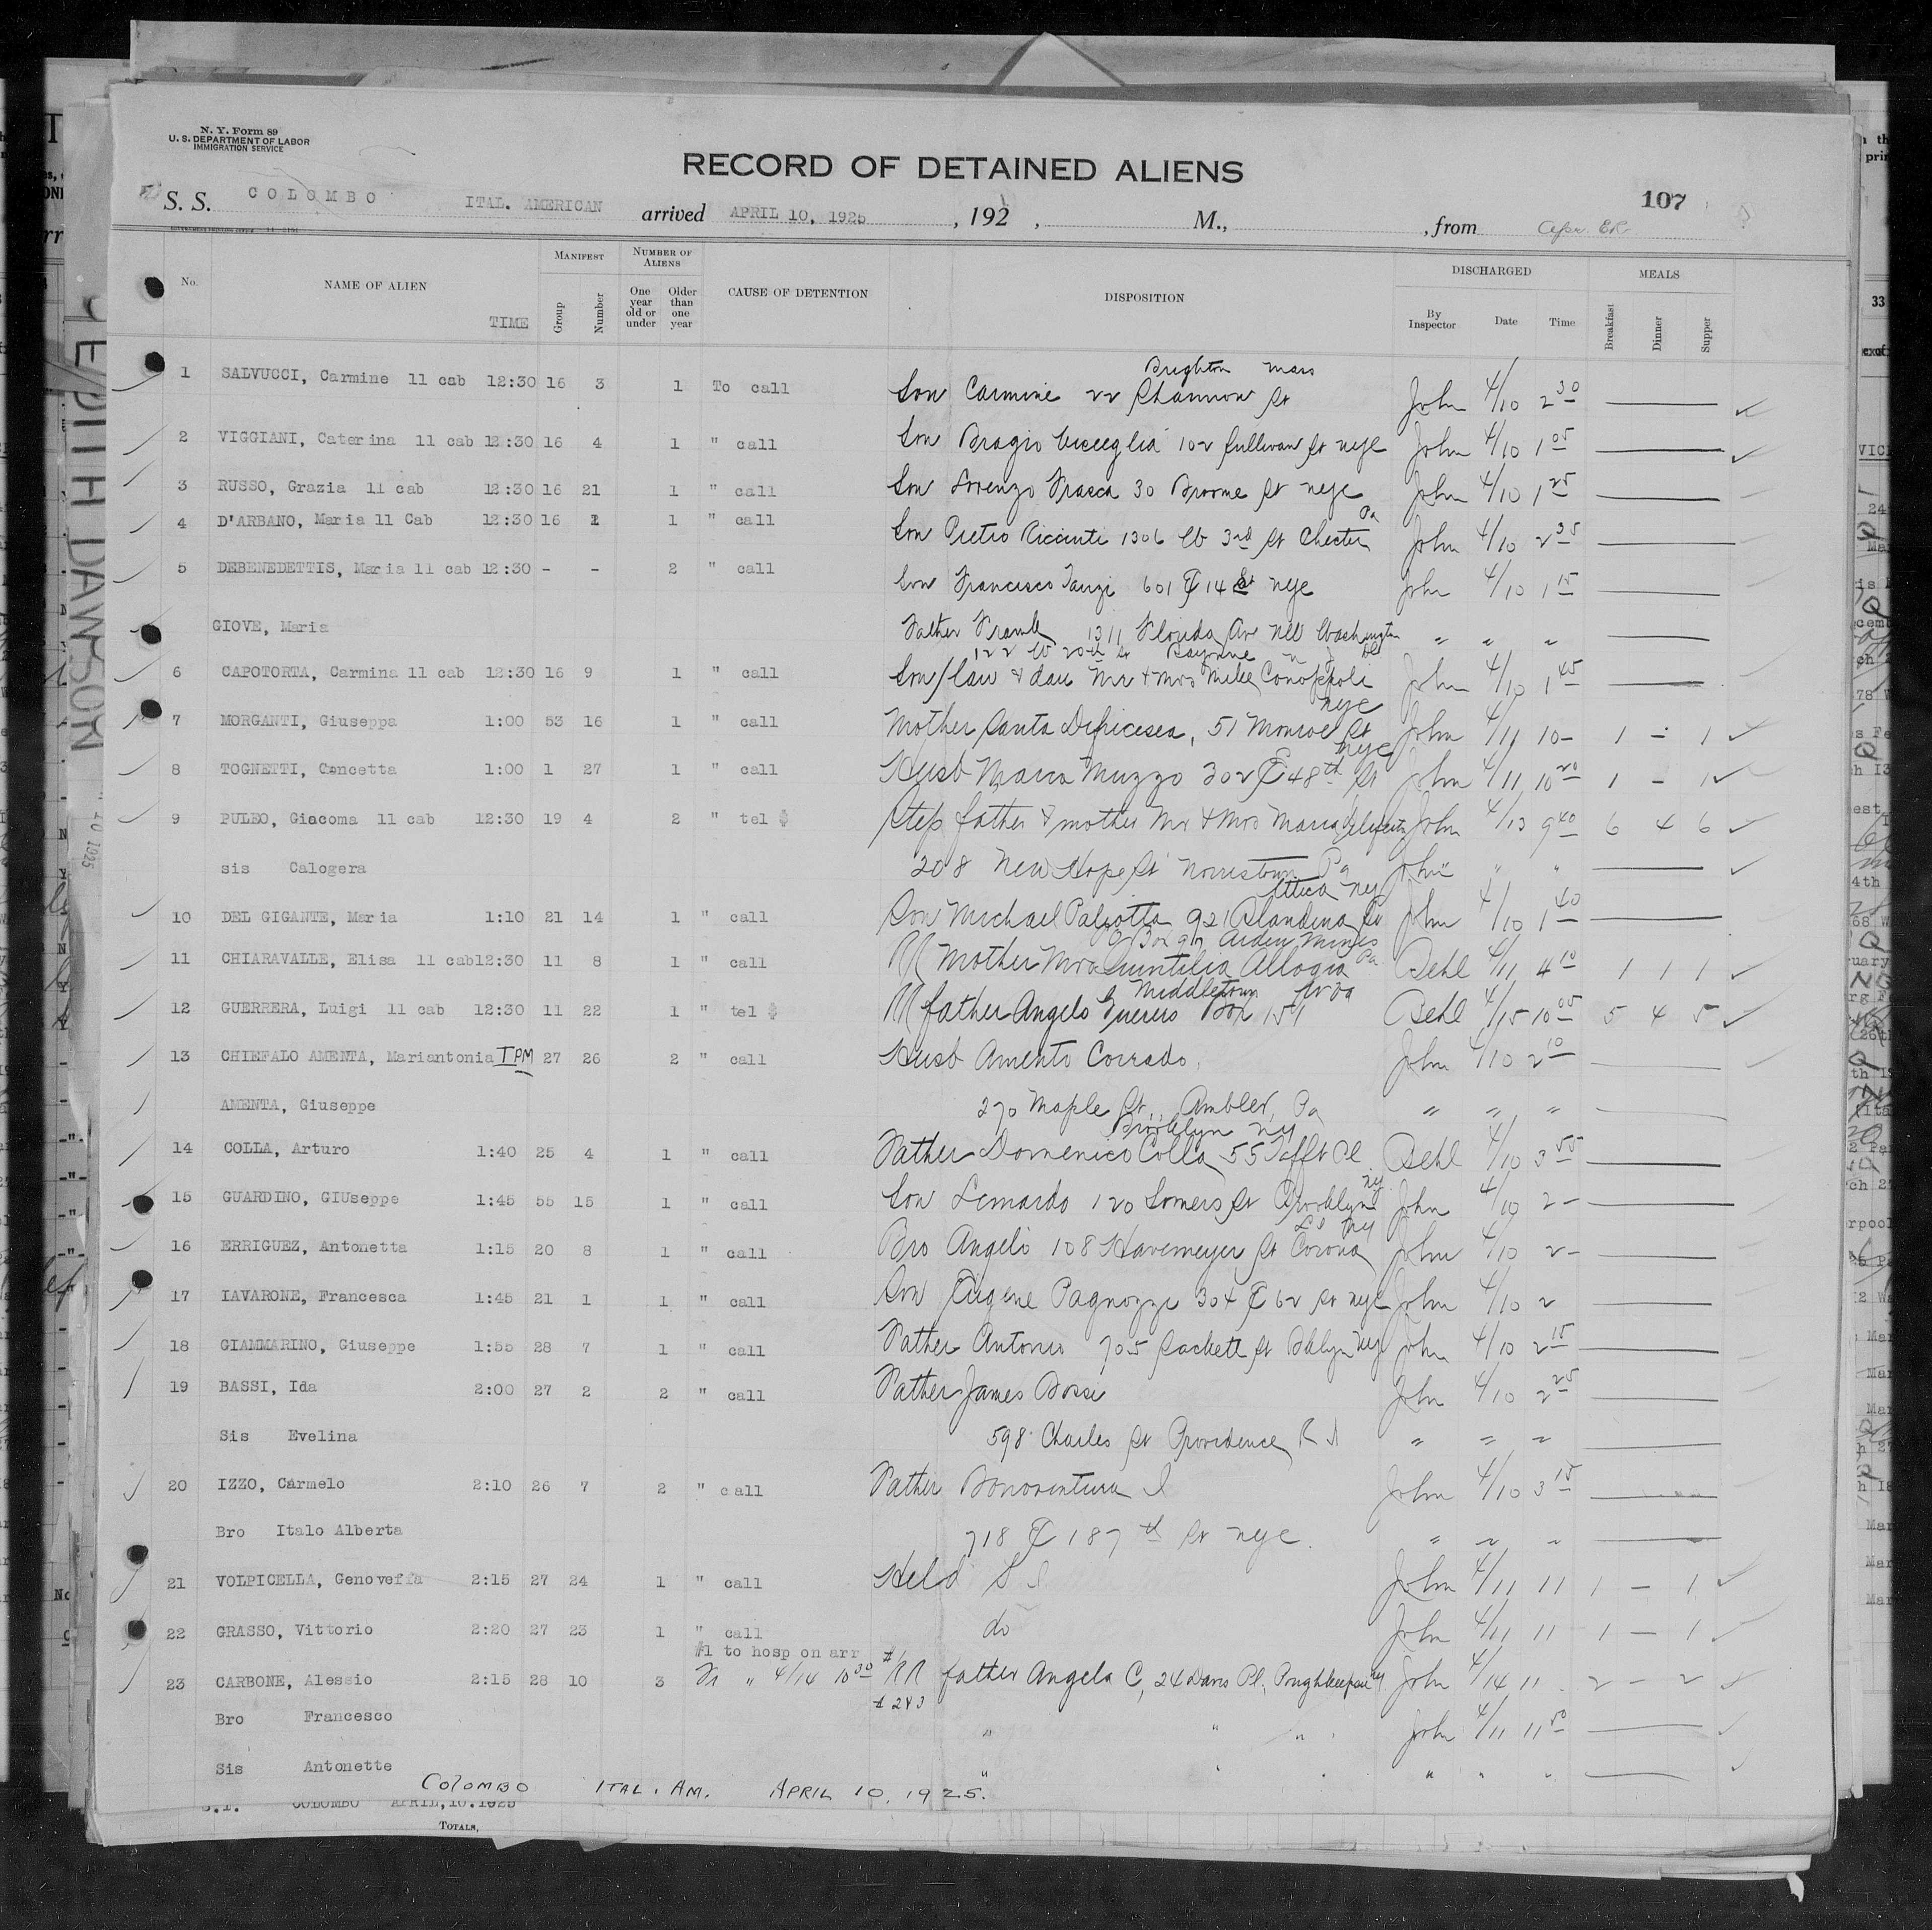 N. Y. Form 89
U. S. DEPARTMENT OF LABOR
IMMIGRATION SERVICE
RECORD OF DETAINED ALIENS
107
S. S. COLOMBO ITAL. AMERICAN arrived APRIL 10, 1925, 192 , M., , from
No. NAME OF ALIEN TIME MANIFEST Group Number NUMBER OF ALIENS One year old or under Older than one year CAUSE OF DETENTION DISPOSITION DISCHARGED By Inspector Date Time MEALS Breakfast Dinner Supper
Brighton Mass
1 SALVUCCI, Carmine 11 cab 12:30 16 3 1 To call Son Carmine 22 Shannon St John 4/10 2 30
2 VIGGIANI, Caterina 11 cab 12:30 16 4 1 " call Son Bragio 102 Sullivan St nyc John 4/10 1 05
3 RUSSO, Grazia 11 cab 12:30 16 21 1 " call Son Lorenzo Frasca 30 Broome St nyc John 4/10 1 25
Pa
4 D'ARBANO, Maria 11 Cab 12:30 16 1 " call Son Pietro Riccinti 1306 W 3rd St Chester John 4/10 2 35
5 DEBENEDETTIS, Maria 11 cab 12:30 - - 2 " call Son Francesco Tanzi 601 E 14 St nyc John 4/10 1 15
GIOVE, Maria Father Frank 1311 Florida Ave NW Washington " " "
122 W 20th St Bayonne n J DC
6 CAPOTORTA, Carmina 11 cab 12:30 16 9 1 " call Son/law & dau Mr + Mrs Mike John 4/10 1 45
nyc
7 MORGANTI, Giuseppa 1:00 53 16 1 " call Mother Santa 51 Monroe St John 4/11 10- 1 - 1
nyc
8 TOGNETTI, Concetta 1:00 1 27 1 " call Husb Muzzo 302 E 48th St John 4/11 10 20 1 - 1
9 PULEO, Giacoma 11 cab 12:30 19 4 2 " tel Step father & mother Mr & Mrs John 4/13 9 40 6 4 6
sis Calogera 208 New Hope St Norristown Pa John " "
Utica ny
10 DEL GIGANTE, Maria 1:10 21 14 1 " call Son Michael 921 Blandina St John 4/10 1 40
PO Box Arden Mines
11 CHIARAVALLE, Elisa 11 cab 12:30 11 8 1 " call Mother Mrs Quintilia Pa Behl 4/11 4 10 1 1 1
Middletown
12 GUERRERA, Luigi 11 cab 12:30 11 22 1 " tel father Angelo Box 151 Behl 4/15 10 05 5 4 5
13 CHIEFALO AMENTA, Mariantonia 1 PM 27 26 2 " call Husb Amento Corrado, John 4/10 2 10
AMENTA, Giuseppe 270 Maple St., Ambler, Pa " " "
Brooklyn ny
14 COLLA, Arturo 1:40 25 4 1 " call Father Domenico Colla 55 Tafft Pl Behl 4/10 3 55
ny
15 GUARDINO, GIUseppe 1:45 55 15 1 " call Son Leonardo 120 Somers St Brooklyn John 4/10 2 -
LI ny
16 ERRIGUEZ, Antonetta 1:15 20 8 1 " call Bro Angelo 108 Havemeyer St Corona John 4/10 2 -
17 IAVARONE, Francesca 1:45 21 1 1 " call Son Eugene Pagnozzi 304 E 62 St nyc John 4/10 2
18 GIAMMARINO, Giuseppe 1:55 28 7 1 " call Father Antonio 705 Sackett St Bklyn ny John 4/10 2 15
19 BASSI, Ida 2:00 27 2 2 " call Father James Bossi John 4/10 2 25
Sis Evelina 598 Charles St Providence R I " " "
20 IZZO, Carmelo 2:10 26 7 2 " call Father Bonaventura I John 4/10 3 15
Bro Italo Alberta 718 E 187th St nyc. " " "
21 VOLPICELLA, Genoveffa 2:15 27 24 1 " call Held S I John 4/11 11 1 - 1
22 GRASSO, Vittorio 2:20 27 23 1 " call do John 4/11 11 1 - 1
#1 to hosp on arr #1
23 CARBONE, Alessio 2:15 28 10 3 Fr " 4/14 10 30 RR father Angelo C, 24 Davis Pl, Poughkeepsie ny John 4/14 11 2 - 2
# 2 & 3
Bro Francesco " " " John 4/11 11 50
Sis Antonette " " " " " "
COLOMBO ITAL. AM. APRIL 10, 1925.
S.I. COLOMBO APRIL,10.1925
TOTALS,
EDITH DAWSON